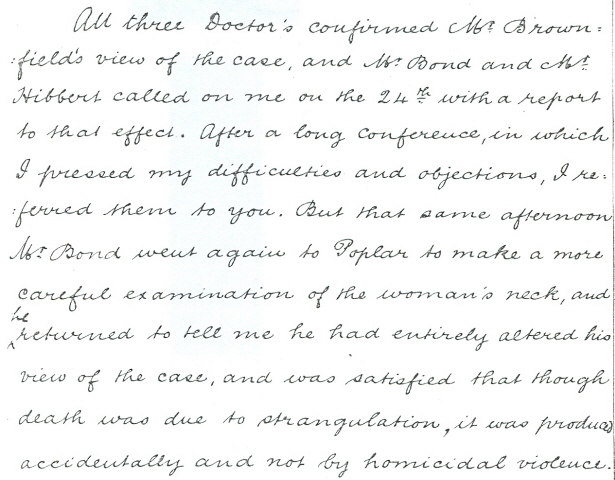 All three Doctor's confirmed Mr. Brown:
:field's view of the case, and Mr. Bond and Mr.
Hibbert called on me on the 24th with a report
to that effect. After a long conference, in which
I pressed my difficulties and objections, I re:
:ferred them to you. But that same afternoon
Mr. Bond went again to Poplar to make a more
careful examination of the woman's neck, and
he returned to tell me he had entirely altered his
view of the case, and was satisfied that though
death was due to strangulation, it was produced
accidentally and not by homicidal violence.